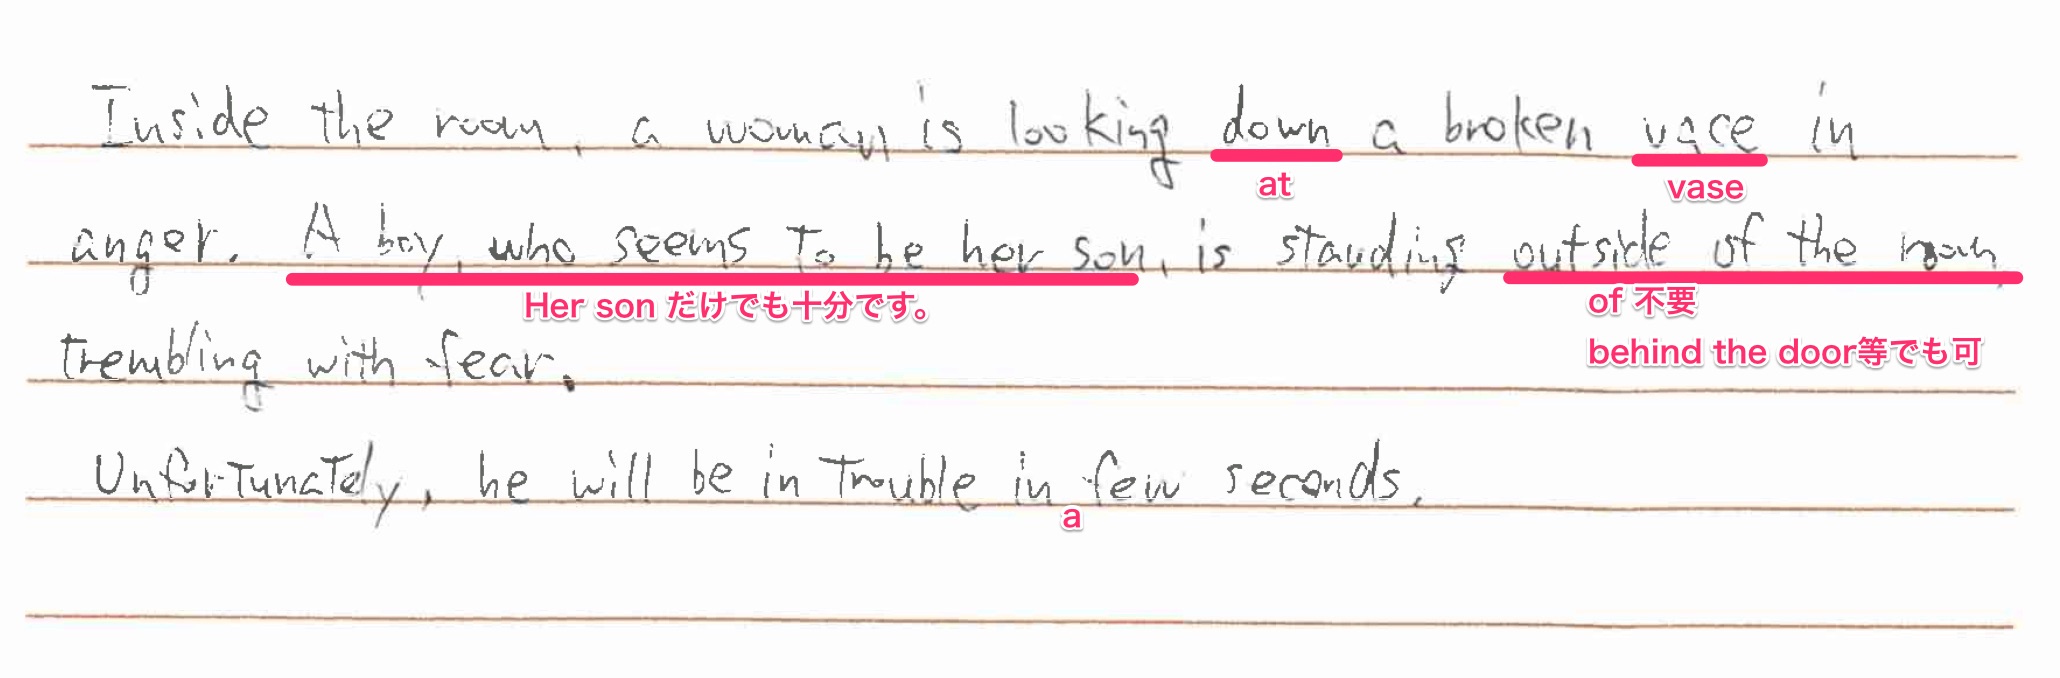 Inside the room, a woman is looking down a broken vace in
at vase
anger. A boy, who seems to be her son, is standing outside of the room,
Her son だけでも十分です。 of 不要
behind the door等でも可
trembling with fear.
Unfortunately, he will be in trouble in few seconds.
a